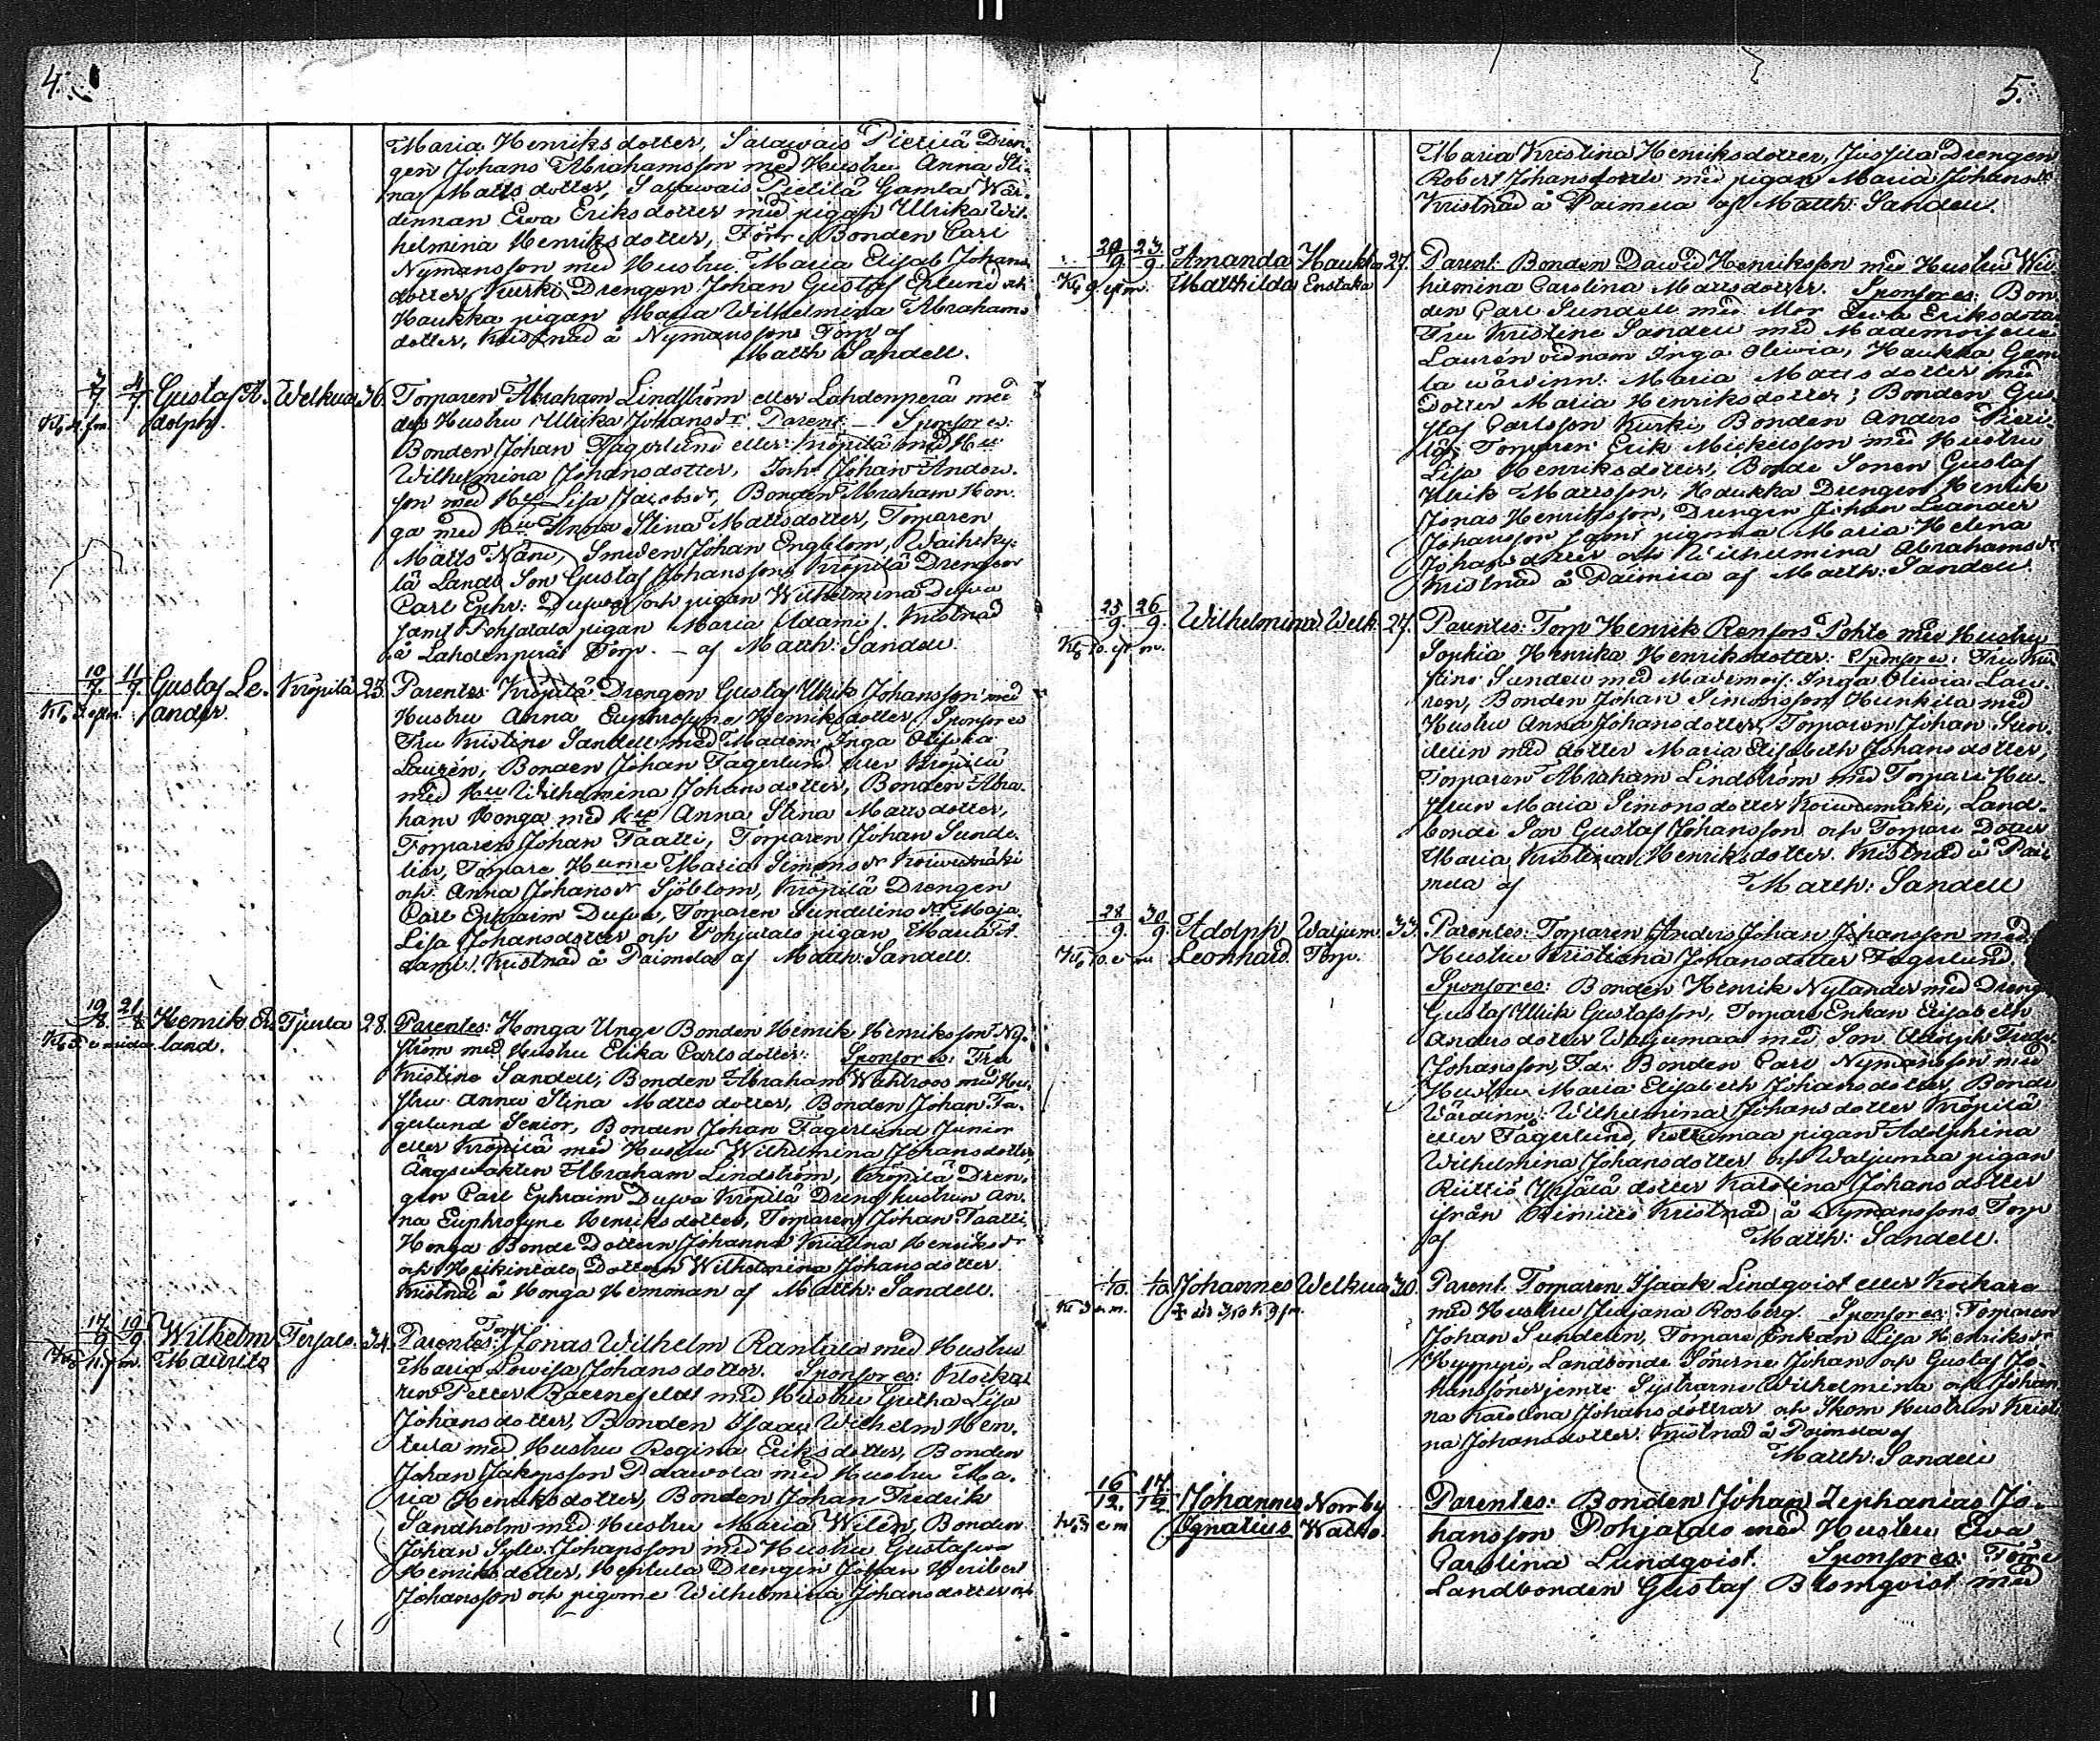 4.
Maria Henriksdotter, Salawais Pietilä Dren-
gen Johans Abrahamsson med Hustru Anna Sti-
na Mattsdotter, Salawais Pietilä Gamla Wär-
dinnan Ewa Eriksdotter med pigan Ulrika Wil-
helmina Henriksdotter, Förre Bonden Carl
Nymansson med Hustru Maria Elisab Johans
dotter, Kurki Drengen Johan Gustaf Eklund och
Haukka pigan Maria Wilhelmina Abrahams
dotter, Kristnad å Nymanssons Torp af
Matth Sandell.
3/7. 4/7. Gustaf A- Welkua 36. Torparen Abraham Lindström eller Lahdenperä med
dolph. dess Hustru Ulrika Johansdr Parent. — Sponsores:
Bonden Johan Fagerlund eller Kröpilä med Hu
Wilhelmina Johansdotter, Johan Anders-
son med Hu Lisa Jacobsdr, Bonden Abraham Hon-
ga med Hu Anna Stina Mattsdotter, Torparen
Matts Nänu, Smeden Johan Engblom, Waihiky-
lä Landb Son Gustaf Johansson, Kröpilä Drengen
Carl Ephr: Dufva och pigan Wilhelmina Dufva
samt Pohjatalo pigan Maria Adami /. Kristnad
å Lahdenperä Torp. — af Matth: Sandell.
10/7. 11/7. Gustaf Le- Kröpilä 23. Parentes: Kröpilä Drengen Gustaf Ulrik Johansson med
ander. Hustru Anna Euphrosyne Henriksdotter, Sponsores
Fru Kristine Sandell med Madem: Inga Olivia
Laurén, Bonden Johan Fagerlund eller Kröpilä
med Hu Wilhelmina Johansdotter, Bonden Abra-
ham Honga med Hu Anna Stina Mattsdotter,
Torparen Johan Taatti, Torparen Johan Sunde-
lin, Torpare Maria Simonsdr Koiwumäki
och Anna Johansdr Sjöblom, Kröpilä Drengen
Carl Ephraim Dufva, Torparen Sundelins dr Maja
Lisa Johansdotter och Pohjatalo pigan Maria A-
dami /. Kristnad å Paimela af Matth: Sandell.
19/8. 21/8. Henrik Er- Tjerla 28. Parentes: Honga Unge Bonden Henrik Henriksson Ny-
land. ström med Hustru Erika Carlsdotter: Sponsores: Fru
Kristine Sandell, Bonden Abraham Wahlroos med Hu-
stru Anna Stina Mattsdotter, Bonden Johan Fa-
gerlund Senior, Bonden Johan Fagerlund Junior
eller Kröpilä med Hustru Wilhelmina Johansdotter,
Ängswakten Abraham Lindström, Kröpilä Dren-
gen Carl Ephraim Dufva Kröpilä Dreng hustrun An-
na Euphrosyne Henriksdotter, Torparen Johan Taatti,
Honga Bonde Dottern Johanna Kristina Henriksdr
och Heikintalo Dottern Wilhelmina Johansdotter
Kristnad å Honga Hemman af Matth: Sandell.
17/9 19/9 Wilhelm Terjalo. 34. Parentes: Torp. Jonas Wilhelm Rantala med Hustru
Kl. 11. fm. Mauritz Maria Lowisa Johansdotter. Sponsores: Klocka-
ren Petter Baernefeldt med Hustru Gretha Lisa
Johansdotter, Bonden Isaac Wilhelm Hen-
tula med Hustru Regina Eriksdotter, Bonden
Johan Jakopsson Paawola med Hustru Ma-
ria Henriksdotter, Bonden Johan Fredrik
Sandholm med Hustru Maria Wilén, Bonden
Johan Sylv: Johansson med Hustru Gustafwa
Henriksdotter, Hentula Drengen Johan Heribert
Johansson och pigorne Wilhelmina Johansdotter och
5.
Maria Kristina Henriksdotter, Jussila Drengen
Robert med pigan Maria Johansdr
Kristnad å Paimela af Matth: Sandell.
20/9 23/9. Amanda Haukka 27. Parent: Bonden Dawid Henriksson med Hustru Wil-
Kl. 9 eftm. Mathilda Enstaka helmina Carolina Mattsdotter. Sponsores: Bon-
den Carl Sundell med Mor Ewa Eriksdotter
Fru Kristine Sandell med Mademoiselle
Laurén vid namn Inga Oliwia, Haukka Gam-
la wärdinn: Maria Mattsdotter med
Dotter Maria Henriksdotter; Bonden Gus-
staf Carlsson Kurki, Bonden Anders Pieti-
lä, Torparen Erik Mickelsson med Hustru
Lisa Henriksdotter, Bonde Sonen Gustaf
Ulrik Mattsson, Haukka Drengen Henrik
Jonas Henriksson, Drengen Johan Leander
Johansson samt pigorna Maria Helena
Johansdotter och Wilhelmina Abrahamsdr
Kristnad å Paimela af Matth: Sandell.
25/9. 26/9. Wilhelmina Welk. 27. Parentes: Torp Henrik Renfors Pohto med Hustru
Kl. 10. eft m. Sophia Henrika Henriksdotter: Sponsores: Fru Kri-
stine Sandell med Mademois. Inga Oliwia Lau-
rén, Bonden Johan Simonsson Hunkila med
Hustru Anna Johansdotter, Torparen Johan Sun-
delin med dotter Maria Elisabeth Johansdotter,
Torparen Abraham Lindström med Torpare Hu-
strun Maria Simonsdotter Koiwumäki, Land-
bonde Son Gustaf Johansson och Torpare Dotter
Maria Kristina Henriksdotter. Kristnad å Pai-
mela af Matth: Sandell
28/9. 30/9. Adolph Waljum. 33. Parentes: Torparen Anders Johan Johansson med
Leonhard Torp. Hustru Kristiana Johansdotter Fagerlund.
Sponsores: Bonden Henrik Nylander med Dreng
Gustaf Ulrik Gustafsson, Torpare Enkan Elisabeth
Andersdotter Waljumaa med Son Adolph Fredr.
Johansson, F.d. Bonden Carl Nymansson med
Hustru Maria Elisabeth Johansdotter, Bonde
Wärdinn: Wilhelmina Johansdotter Kröpilä
eller Fagerlund, pigan Adolphina
Wilhelmina Johansdotter och Waljumaa pigan
dotter Karolina Johansdotter
ifrån Rimitto Kristnad å Nymanssons Torp
af Matth: Sandell.
1/10. 1/10 Johannes Welkua 30. Parent. Torparen Isaak Lindqvist eller Koskare
med Hustru Juliana Rosberg. Sponsores: Torparen
Johan Sundelin, Torpare Enkan Lisa Henriksdr
Kyypyri, Landbonde Sönerne Johan och Gustaf Jo-
hanssöner jemte Systrarne Wilhelmina och Johan-
na Karolina Johansdöttrar och Skom Hustrun Kristi
na Johansdotter. Kristnad å Paimela af
Matth: Sandell
16/12. 17/12 Johannes Norrby Parentes: Bonden Johan Zephanias Jo-
Ignatius Watto. hansson Pohjatalo med Hustru Ewa
Carolina Lundqvist. Sponsores: Förre
Landbonden Gustaf Blomqvist med